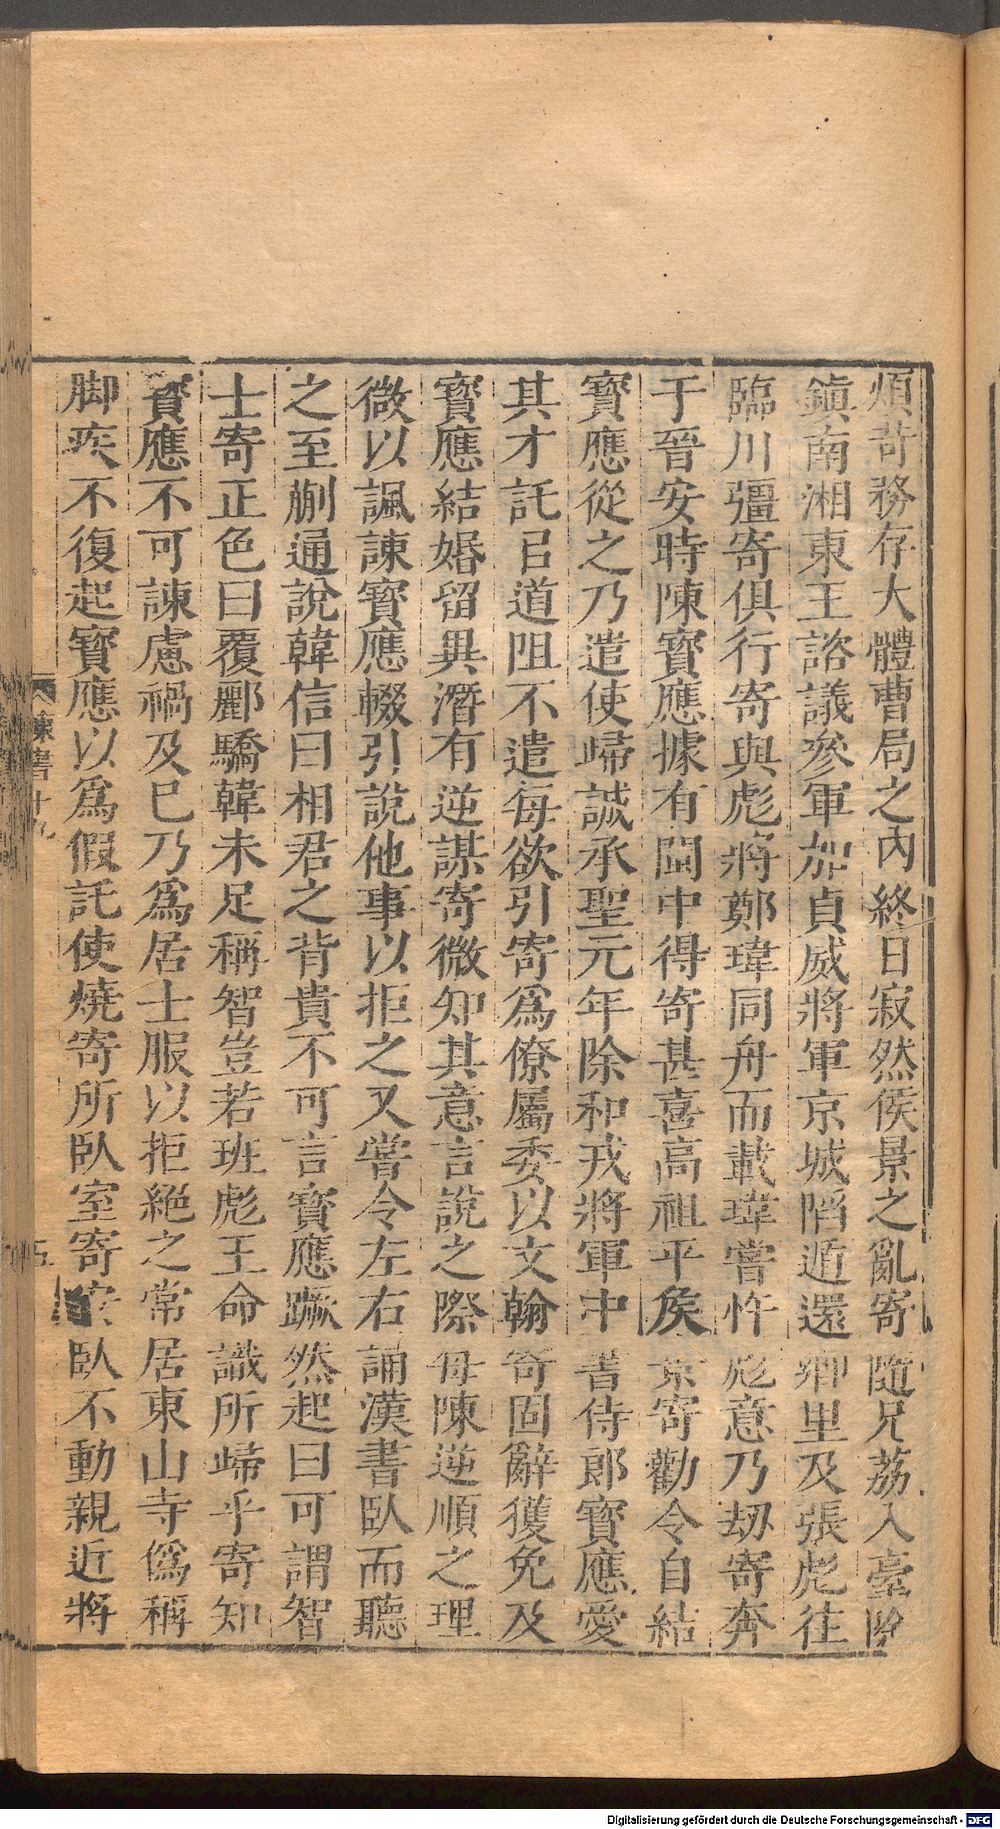 煩苛務存大體曹局之內終日寂然侯景之亂寄隨兄荔入臺除
鎮南湘東王諮議參軍加貞威將軍京城陷遁還鄉里及張彪往
臨川彊寄俱行寄與彪將鄭瑋同舟而載瑋嘗忤彪意乃刼寄奔
于晉安時陳寶應據有閩中得寄甚喜高祖平侯景寄勸令自結
寶應從之乃遣使歸誠承聖元年除和戎將軍中書侍郎寶應愛
其才託以道阻不遣每欲引寄爲僚屬委以文翰寄固辭獲免及
寶應結婚留異潛有逆謀寄微知其意言說之際每陳逆順之理
微以諷諫寶應輟引說他事以拒之又嘗令左右誦漢書臥而聽
之至蒯通說韓信曰相君之背貴不可言寶應蹶然起曰可謂智
士寄正色曰覆酈驕韓未足稱智豈若班彪王命識所歸乎寄知
寶應不可諫慮禍及已乃爲居士服以拒絕之常居東山寺僞稱
脚疾不復起寶應以爲假託使燒寄所臥室寄安臥不動親近將
陳書十九
五
Digitalisierung gefördert durch die Deutsche Forschungsgemeinschaft - DFG